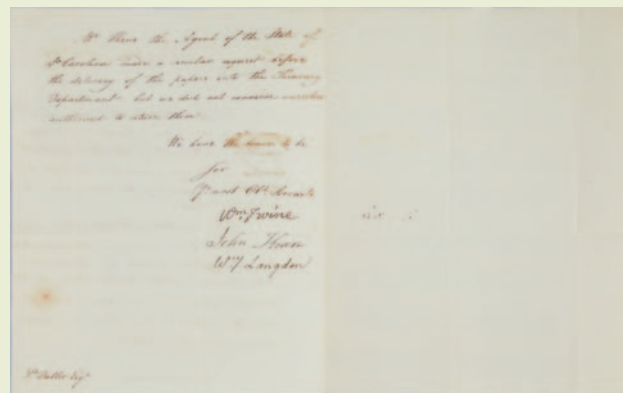 Mr Shaw the Agent of the State of
So Carolina made a similar request before
the delivery of the papers into the Treasury
Department but we did not conceive ourselves
authorised to return them
We have the honor to be
for
Yr most Obt Servants
Wm Irvine
John Kean
Wy Langdon
Po Butler Esqr